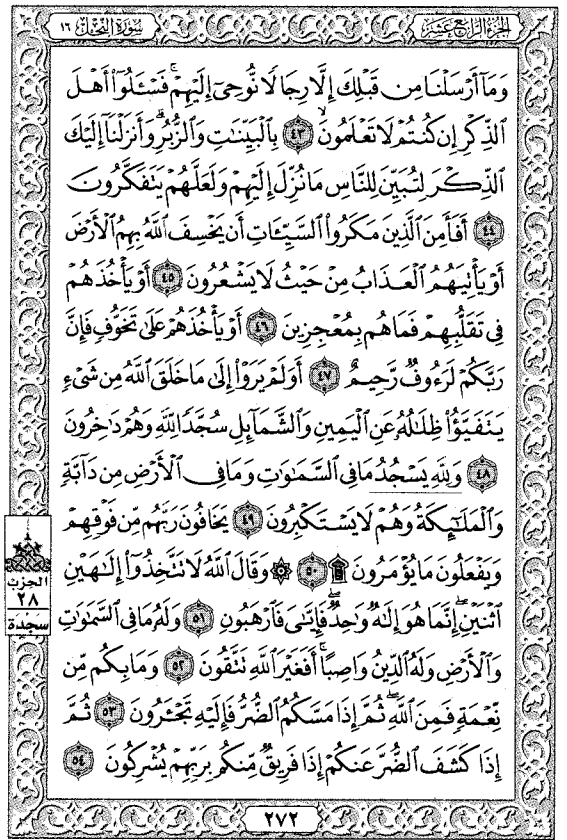 الجزء الرابع عشر
سورة النحل ١٦
وَمَآ أَرْسَلْنَا مِن قَبْلِكَ إِلَّا رِجَالًا نُّوحِىٓ إِلَيْهِمْ ۚ فَسْـَٔلُوٓا۟ أَهْلَ
ٱلذِّكْرِ إِن كُنتُمْ لَا تَعْلَمُونَ ٤٣ بِٱلْبَيِّنَـٰتِ وَٱلزُّبُرِ ۗ وَأَنزَلْنَآ إِلَيْكَ
ٱلذِّكْرَ لِتُبَيِّنَ لِلنَّاسِ مَا نُزِّلَ إِلَيْهِمْ وَلَعَلَّهُمْ يَتَفَكَّرُونَ
٤٤ أَفَأَمِنَ ٱلَّذِينَ مَكَرُوا۟ ٱلسَّيِّـَٔاتِ أَن يَخْسِفَ ٱللَّهُ بِهِمُ ٱلْأَرْضَ
أَوْ يَأْتِيَهُمُ ٱلْعَذَابُ مِنْ حَيْثُ لَا يَشْعُرُونَ ٤٥ أَوْ يَأْخُذَهُمْ
فِى تَقَلُّبِهِمْ فَمَا هُم بِمُعْجِزِينَ ٤٦ أَوْ يَأْخُذَهُمْ عَلَىٰ تَخَوُّفٍ فَإِنَّ
رَبَّكُمْ لَرَءُوفٌ رَّحِيمٌ ٤٧ أَوَلَمْ يَرَوْا۟ إِلَىٰ مَا خَلَقَ ٱللَّهُ مِن شَىْءٍ
يَتَفَيَّؤُا۟ ظِلَـٰلُهُۥ عَنِ ٱلْيَمِينِ وَٱلشَّمَآئِلِ سُجَّدًا لِّلَّهِ وَهُمْ دَٰخِرُونَ
٤٨ وَلِلَّهِ يَسْجُدُ مَا فِى ٱلسَّمَـٰوَٰتِ وَمَا فِى ٱلْأَرْضِ مِن دَآبَّةٍ
وَٱلْمَلَـٰٓئِكَةُ وَهُمْ لَا يَسْتَكْبِرُونَ ٤٩ يَخَافُونَ رَبَّهُم مِّن فَوْقِهِمْ
وَيَفْعَلُونَ مَا يُؤْمَرُونَ ۩ ٥٠ ۞ وَقَالَ ٱللَّهُ لَا تَتَّخِذُوٓا۟ إِلَـٰهَيْنِ
ٱثْنَيْنِ ۖ إِنَّمَا هُوَ إِلَـٰهٌ وَٰحِدٌ ۖ فَإِيَّـٰىَ فَٱرْهَبُونِ ٥١ وَلَهُۥ مَا فِى ٱلسَّمَـٰوَٰتِ
وَٱلْأَرْضِ وَلَهُ ٱلدِّينُ وَاصِبًا ۚ أَفَغَيْرَ ٱللَّهِ تَتَّقُونَ ٥٢ وَمَا بِكُم مِّن
نِّعْمَةٍ فَمِنَ ٱللَّهِ ۖ ثُمَّ إِذَا مَسَّكُمُ ٱلضُّرُّ فَإِلَيْهِ تَجْـَٔرُونَ ٥٣ ثُمَّ
إِذَا كَشَفَ ٱلضُّرَّ عَنكُمْ إِذَا فَرِيقٌ مِّنكُم بِرَبِّهِمْ يُشْرِكُونَ ٥٤
الحزب
٢٨
سجدة
٢٧٢